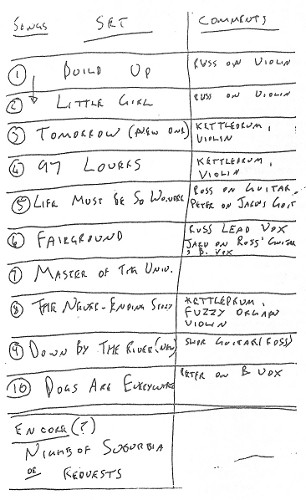 SONGS SET COMMENTS
1 BUILD UP RUSS ON VIOLIN
2 LITTLE GIRL RUSS ON VIOLIN
3 TOMORROW (NEW ONE) KETTLEDRUM, VIOLIN
4 97 LOVERS KETTLEDRUM, VIOLIN
5 LIFE MUST BE SO WONDERF RUSS ON GUITAR, PETER ON JARV'S GUIT
6 FAIRGROUND RUSS LEAD VOX
JARV ON RUSS' GUITAR
& B. VOX
7 MASTER OF THE UNIV.
8 THE NEVER-ENDING STORY KETTLEDRUM,
FUZZY ORGAN
VIOLIN
9 DOWN BY THE RIVER (NEW) GUITAR (RUSS)
10 DOGS ARE EVERYWHERE PETER ON B VOX
ENCORE (?)
NIGHTS OF SUBURBIA
OR REQUESTS